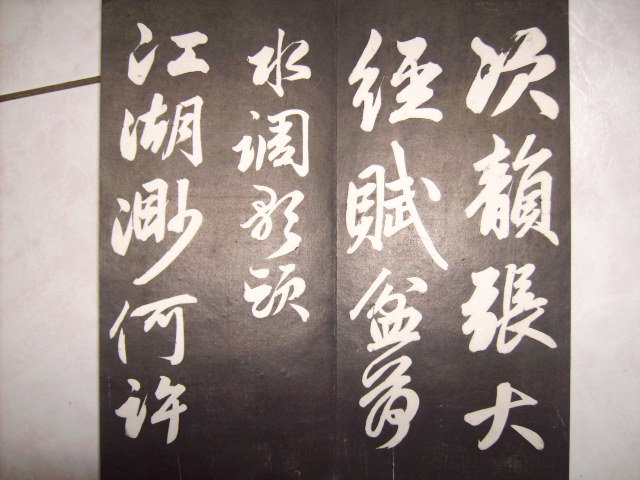 次韻張大
經賦盆荷
水調歌頭
江湖渺何許